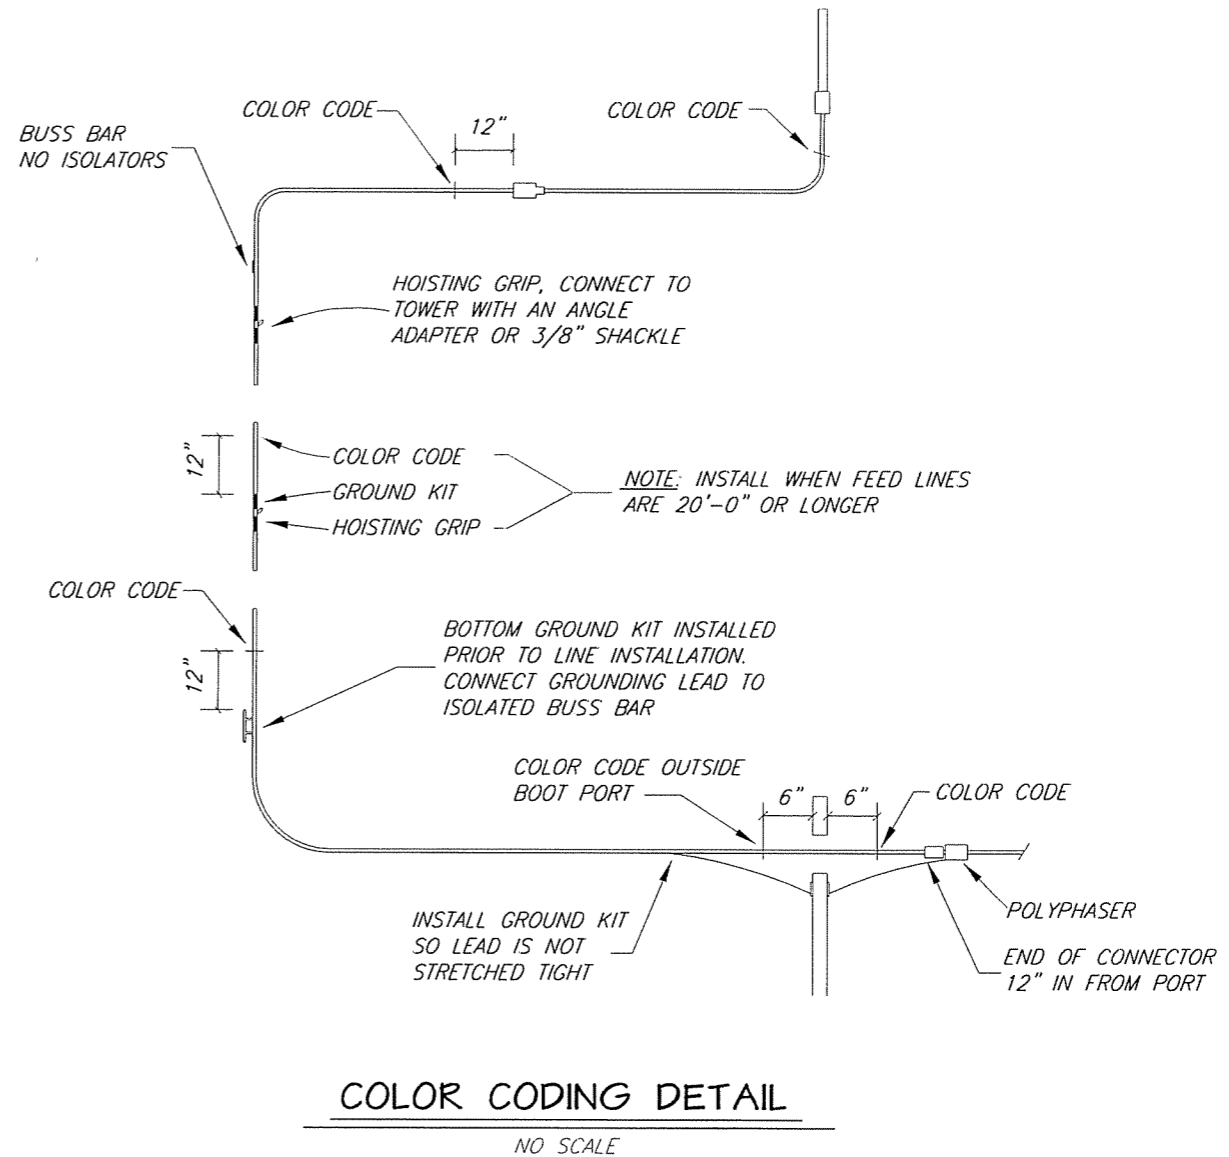 COLOR CODE
12"
COLOR CODE
BUSS BAR
NO ISOLATORS
HOISTING GRIP, CONNECT TO
TOWER WITH AN ANGLE
ADAPTER OR 3/8" SHACKLE
12"
COLOR CODE
GROUND KIT
HOISTING GRIP
NOTE: INSTALL WHEN FEED LINES
ARE 20'-0" OR LONGER
COLOR CODE
12"
BOTTOM GROUND KIT INSTALLED
PRIOR TO LINE INSTALLATION.
CONNECT GROUNDING LEAD TO
ISOLATED BUSS BAR
COLOR CODE OUTSIDE
BOOT PORT
6"
6"
COLOR CODE
INSTALL GROUND KIT
SO LEAD IS NOT
STRETCHED TIGHT
POLYPHASER
END OF CONNECTOR
12" IN FROM PORT
COLOR CODING DETAIL
NO SCALE